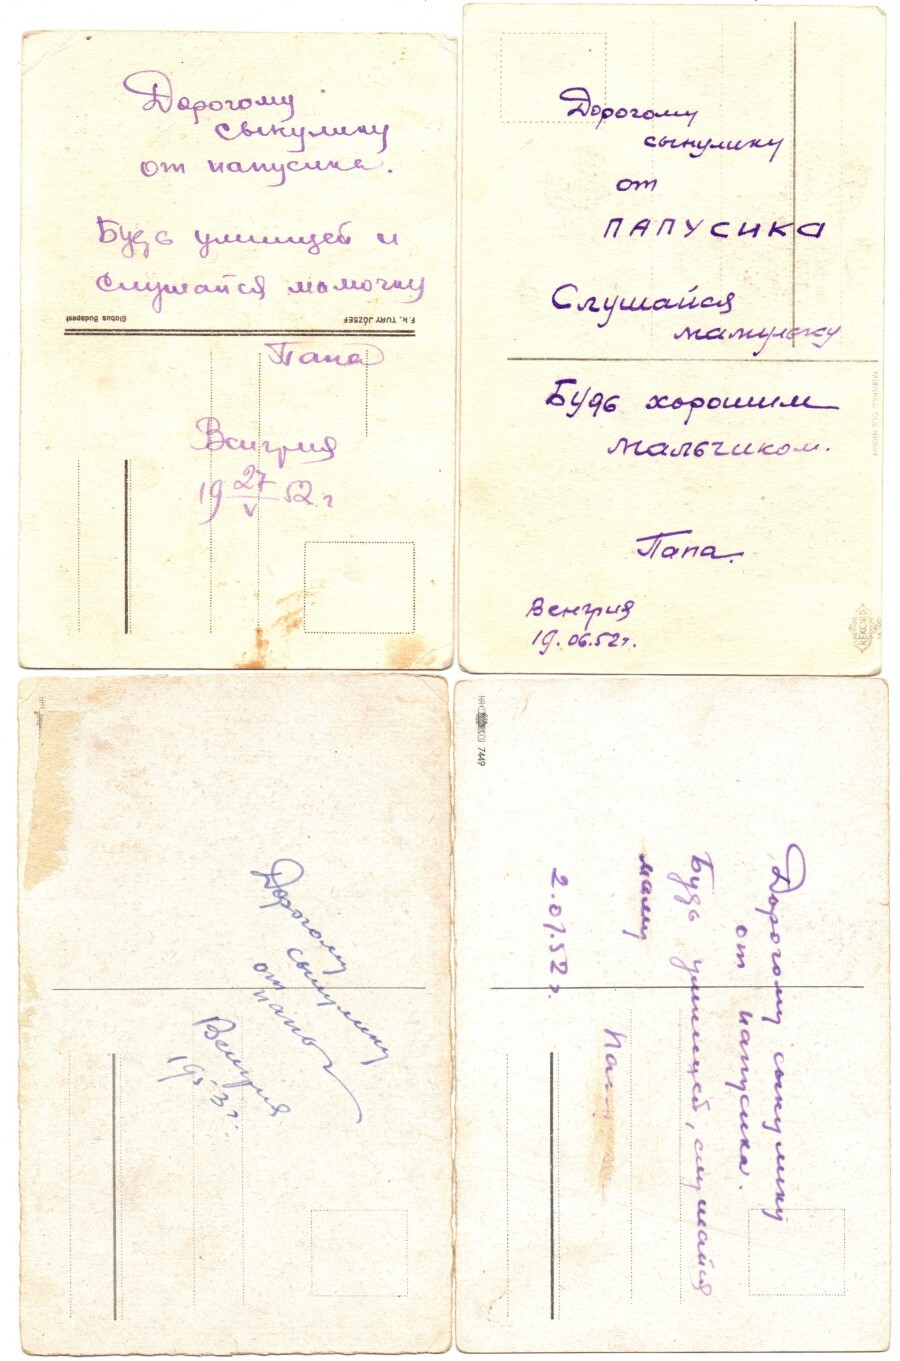 Дорогому
сынулику
от папусика.
Будь умницей и
слушайся мамочку
Globus Budapest
F. k. TURY JÓZSEF
Папа
Венгрия
19 27/V 52 г
Дорогому
сынулику
от
ПАПУСИКА
Слушайся
мамульку
Будь хорошим
мальчиком.
Папа.
Венгрия
19.06.52г.
REKORD
Дорогому
сынулику
от
папы
Венгрия
1953г.
7449
Дорогому сынулику
от папусика.
Будь умницей, слушайся
маму
2.07.52г.